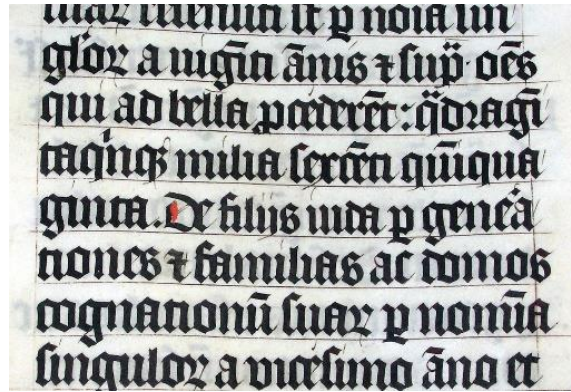 suaꝝ inuenti sūt ꝑ noīa sin
gl'oꝝ a uigīti ānis ⁊ sup̄· oēs
qui ad bella ꝓcederēt: qͣdragī
taqͥnqꝫ milia sexcēti qūiqua
ginta. De filijs iuda ꝑ gen̄ea
tiones ⁊ familias ac domos
cognationū suaꝝ ꝑ nomīa
singuloꝝ a vicesimo āno et